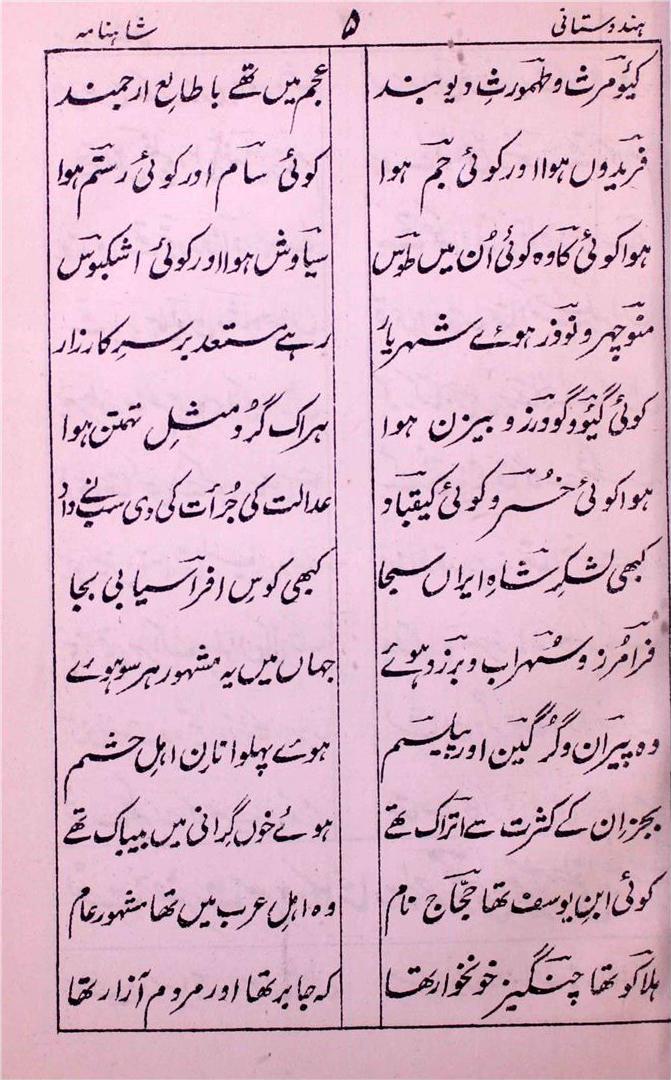 ہندوستانی ۵ شاہنامہ
کیُومَرث و طہمورثِ دیو بند عجم میں تھے با طالعِ ارجمند
فریدوں ہوا اور کوئی جم ہوا کوئی سام اور کوئی رستم ہوا
ہوا کوئی کاوہ کوئی اُن میں طوس سیاوش ہوا اور کوئی اشکبوس
منوچہر و نوذر ہوئے شہریار رہے مستعد بر سرِ کارزار
کوئی گیو و گودرز و بیزن ہوا ہر اک گُرد مثلِ تہمتن ہوا
ہوا کوئی خُسرو کوئی کیقباد عدالت کی جُرأت کی دی سب نے داد
کبھی لشکرِ شاہِ ایراں سجا کبھی کوسِ افراسیابی بجا
فرامرز و سُہراب و برزو ہوئے جہاں میں یہ مشہور ہر سو ہوئے
وہ پیران و گُرگین اور پیلسم ہوئے پہلوانانِ اہلِ حشم
بجز ان کے کثرت سے اتراک تھے ہوئے خوں گرانی میں بیباک تھے
کوئی ابنِ یوسف تھا حجّاج نام وہ اہلِ عرب میں تھا مشہورِ عام
ہلاکو تھا چنگیز خونخوار تھا کہ جابر تھا اور مردم آزار تھا